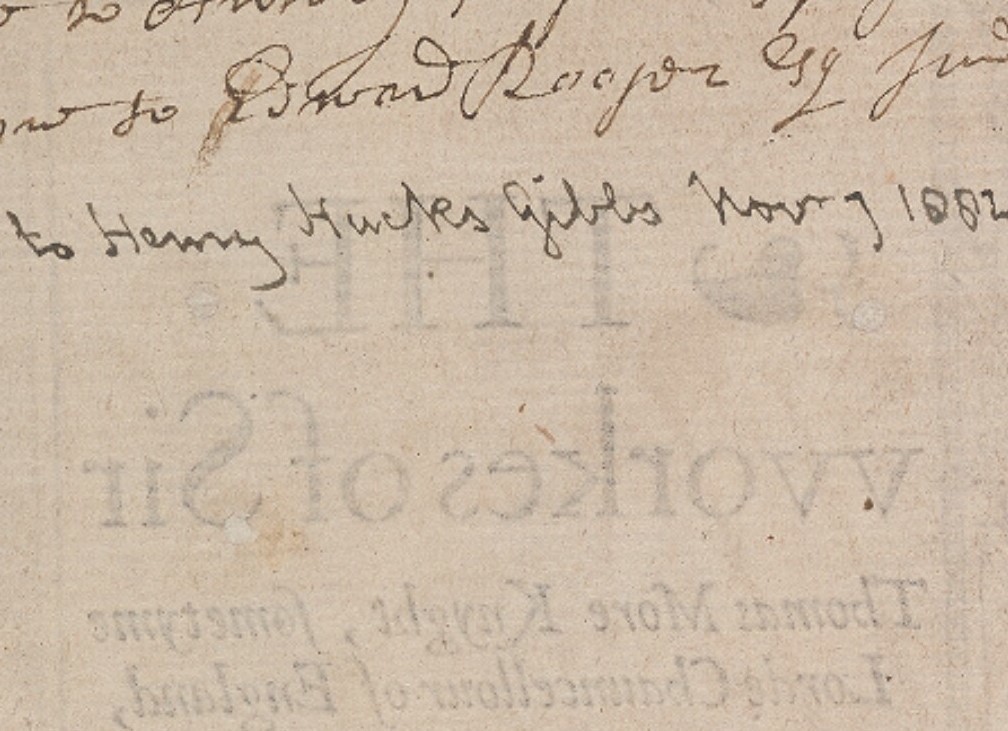 to Edward Rooper Esq
to Henry Hucks Gibbs Nov 7 1882
THE
vvorkes of Sir
Thomas More Knyght, sometyme
Lorde Chauncellour of England,